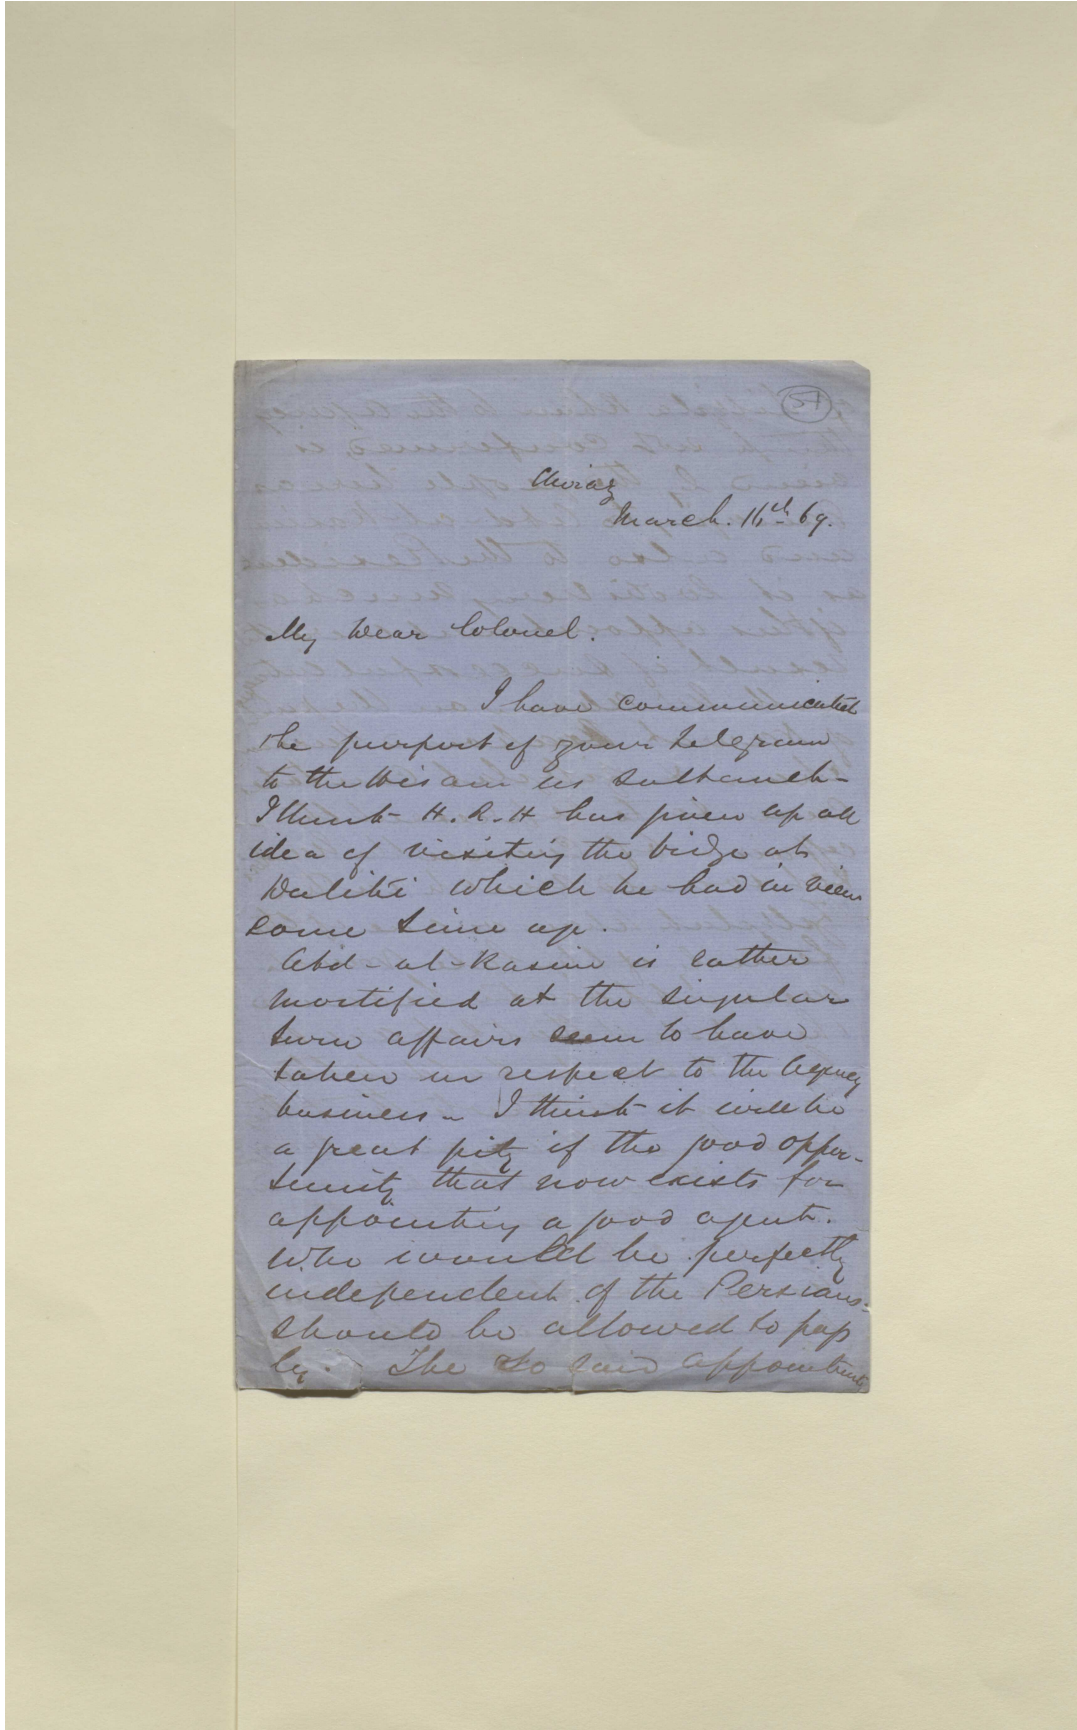 51
Shiraz
March. 16th 69.
My Dear Colonel.
I have communicated
the purport of your telegram
to the Hisam us Sultaneh -
I think H.R.H has given up all
idea of visiting the bridge at
Daliki which he had in view
some time ago.
Abd-al-Kasim is rather
mortified at the singular
turn affairs seem to have
taken in respect to the Agency
business - I think it will be
a great pity if the good oppor-
tunity that now exists for
appointing a good agent.
who would be perfectly
independent of the Persians.
should be allowed to pass
by. The so said appointment